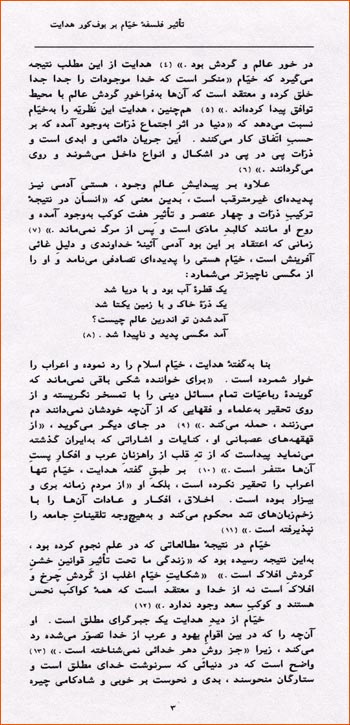 تأثیر فلسفهٔ خیّام بر بوف‌کور هدایت
در خور عالم و گردش بود.» (۴) هدایت از این مطلب نتیجه
می‌گیرد که خیّام «منکر است که خدا موجودات را جدا جدا
خلق کرده و معتقد است که آن‌ها به‌فراخور گردش عالم با محیط
توافق پیدا کرده‌اند.» (۵) هم‌چنین، هدایت این نظریّه را به‌خیّام
نسبت می‌دهد که «دنیا در اثر اجتماع ذرّات به‌وجود آمده که بر
حسب اتّفاق کار می‌کنند. این جریان دائمی و ابدی است و
ذرّات پی در پی در اشکال و انواع داخل می‌شوند و روی
می‌گردانند.» (۶)
علاوه بر پیدایش عالم وجود، هستی آدمی نیز
پدیده‌ای غیرمترقب است، بدین معنی که «انسان در نتیجهٔ
ترکیب ذرّات و چهار عنصر و تأثیر هفت کوکب به‌وجود آمده و
روح او مانند کالبد مادّی است و پس از مرگ نمی‌ماند.» (۷)
زمانی که اعتقاد بر این بود آدمی آئینهٔ خداوندی و دلیل غائی
آفرینش است، خیّام هستی را پدیده‌ای تصادفی می‌نامد و او را
از مگسی ناچیزتر می‌شمارد:
یک قطرهٔ آب بود و با دریا شد
یک ذرّهٔ خاک و با زمین یکتا شد
آمدشدن تو اندرین عالم چیست؟
آمد مگسی پدید و ناپیدا شد. (۸)
بنا به‌گفتهٔ هدایت، خیّام اسلام را رد نموده و اعراب را
خوار شمرده است. «برای خواننده شکی باقی نمی‌ماند که
گویندهٔ رباعیّات تمام مسائل دینی را با تمسخر نگریسته و از
روی تحقیر به‌علماء و فقهایی که از آن‌چه خودشان نمی‌دانند دم
می‌زنند، حمله می‌کند.» (۹) در جای دیگر می‌گوید، «از
قهقهه‌های عصبانی او، کنایات و اشاراتی که به‌ایران گذشته
می‌نماید پیداست که از ته قلب از راهزنان عرب و افکار پست
آن‌ها متنفر است.» (۱۰) بر طبق گفته هدایت، خیّام تنها
اعراب را تحقیر نکرده است، بلکه او «از مردم زمانه بری و
بیزار بوده است. اخلاق، افکار و عادات آن‌ها را با
زخم‌زبان‌های تند محکوم می‌کند و به‌هیچ‌وجه تلقینات جامعه را
نپذیرفته است.» (۱۱)
خیّام در نتیجهٔ مطالعاتی که در علم نجوم کرده بود،
به‌این نتیجه رسیده بود که «زندگی ما تحت تأثیر قوانین خشن
گردش افلاک است.» «شکایت خیّام اغلب از گردش چرخ و
افلاک است نه از خدا و معتقد است که همهٔ کواکب نحس
هستند و کوکب سعد وجود ندارد.» (۱۲)
خیّام از دید هدایت یک جبرگرای مطلق است. او
آن‌چه را که در بین اقوام یهود و عرب از خدا تصوّر می‌شده رد
می‌کند، زیرا «جز روش دهر خدائی نمی‌شناخته است.» (۱۳)
واضح است که در دنیائی که سرنوشت خدای مطلق است و
ستارگان منحوسند، بدی و نحوست بر خوبی و شادکامی چیره
۳